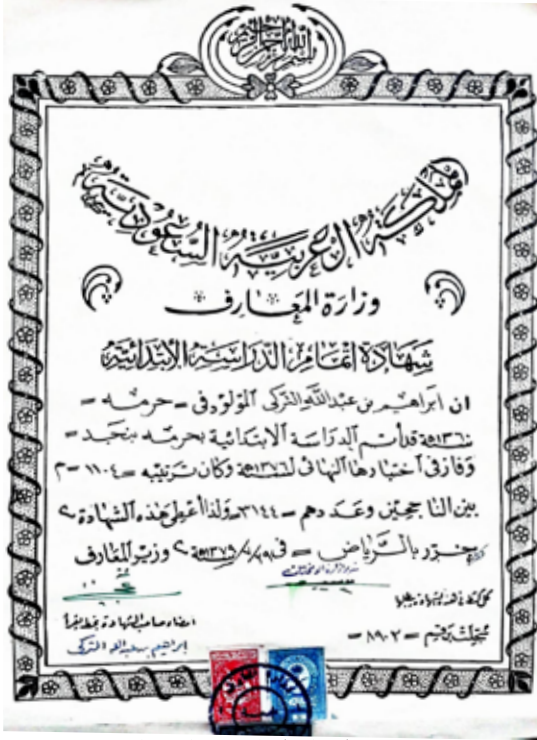 بسم الله الرحمن الرحيم
المملكة العربية السعودية
وزارة المعارف
شهادة اتمام الدراسة الابتدائية
ان ابراهيم بن عبدالله التركي المولود في = حرمه =
سنة ١٣٦٠هـ قد أتم الدراسة الابتدائية بحرمه بنجد =
وفاز في اختبارها النهائي لسنة ١٣٧٦هـ وكان ترتيبه = ١١٠٤ = م
بين الناجحين وعددهم = ٣١٤٤ = ولذا أعطي هذه الشهادة
حرر بالرياض = في ١٣٧٩هـ وزير المعارف
امضاء صاحب الشهادة بخط يده
ابراهيم بن عبدالله التركي
سجلت برقم = ٨٩٠٢ =